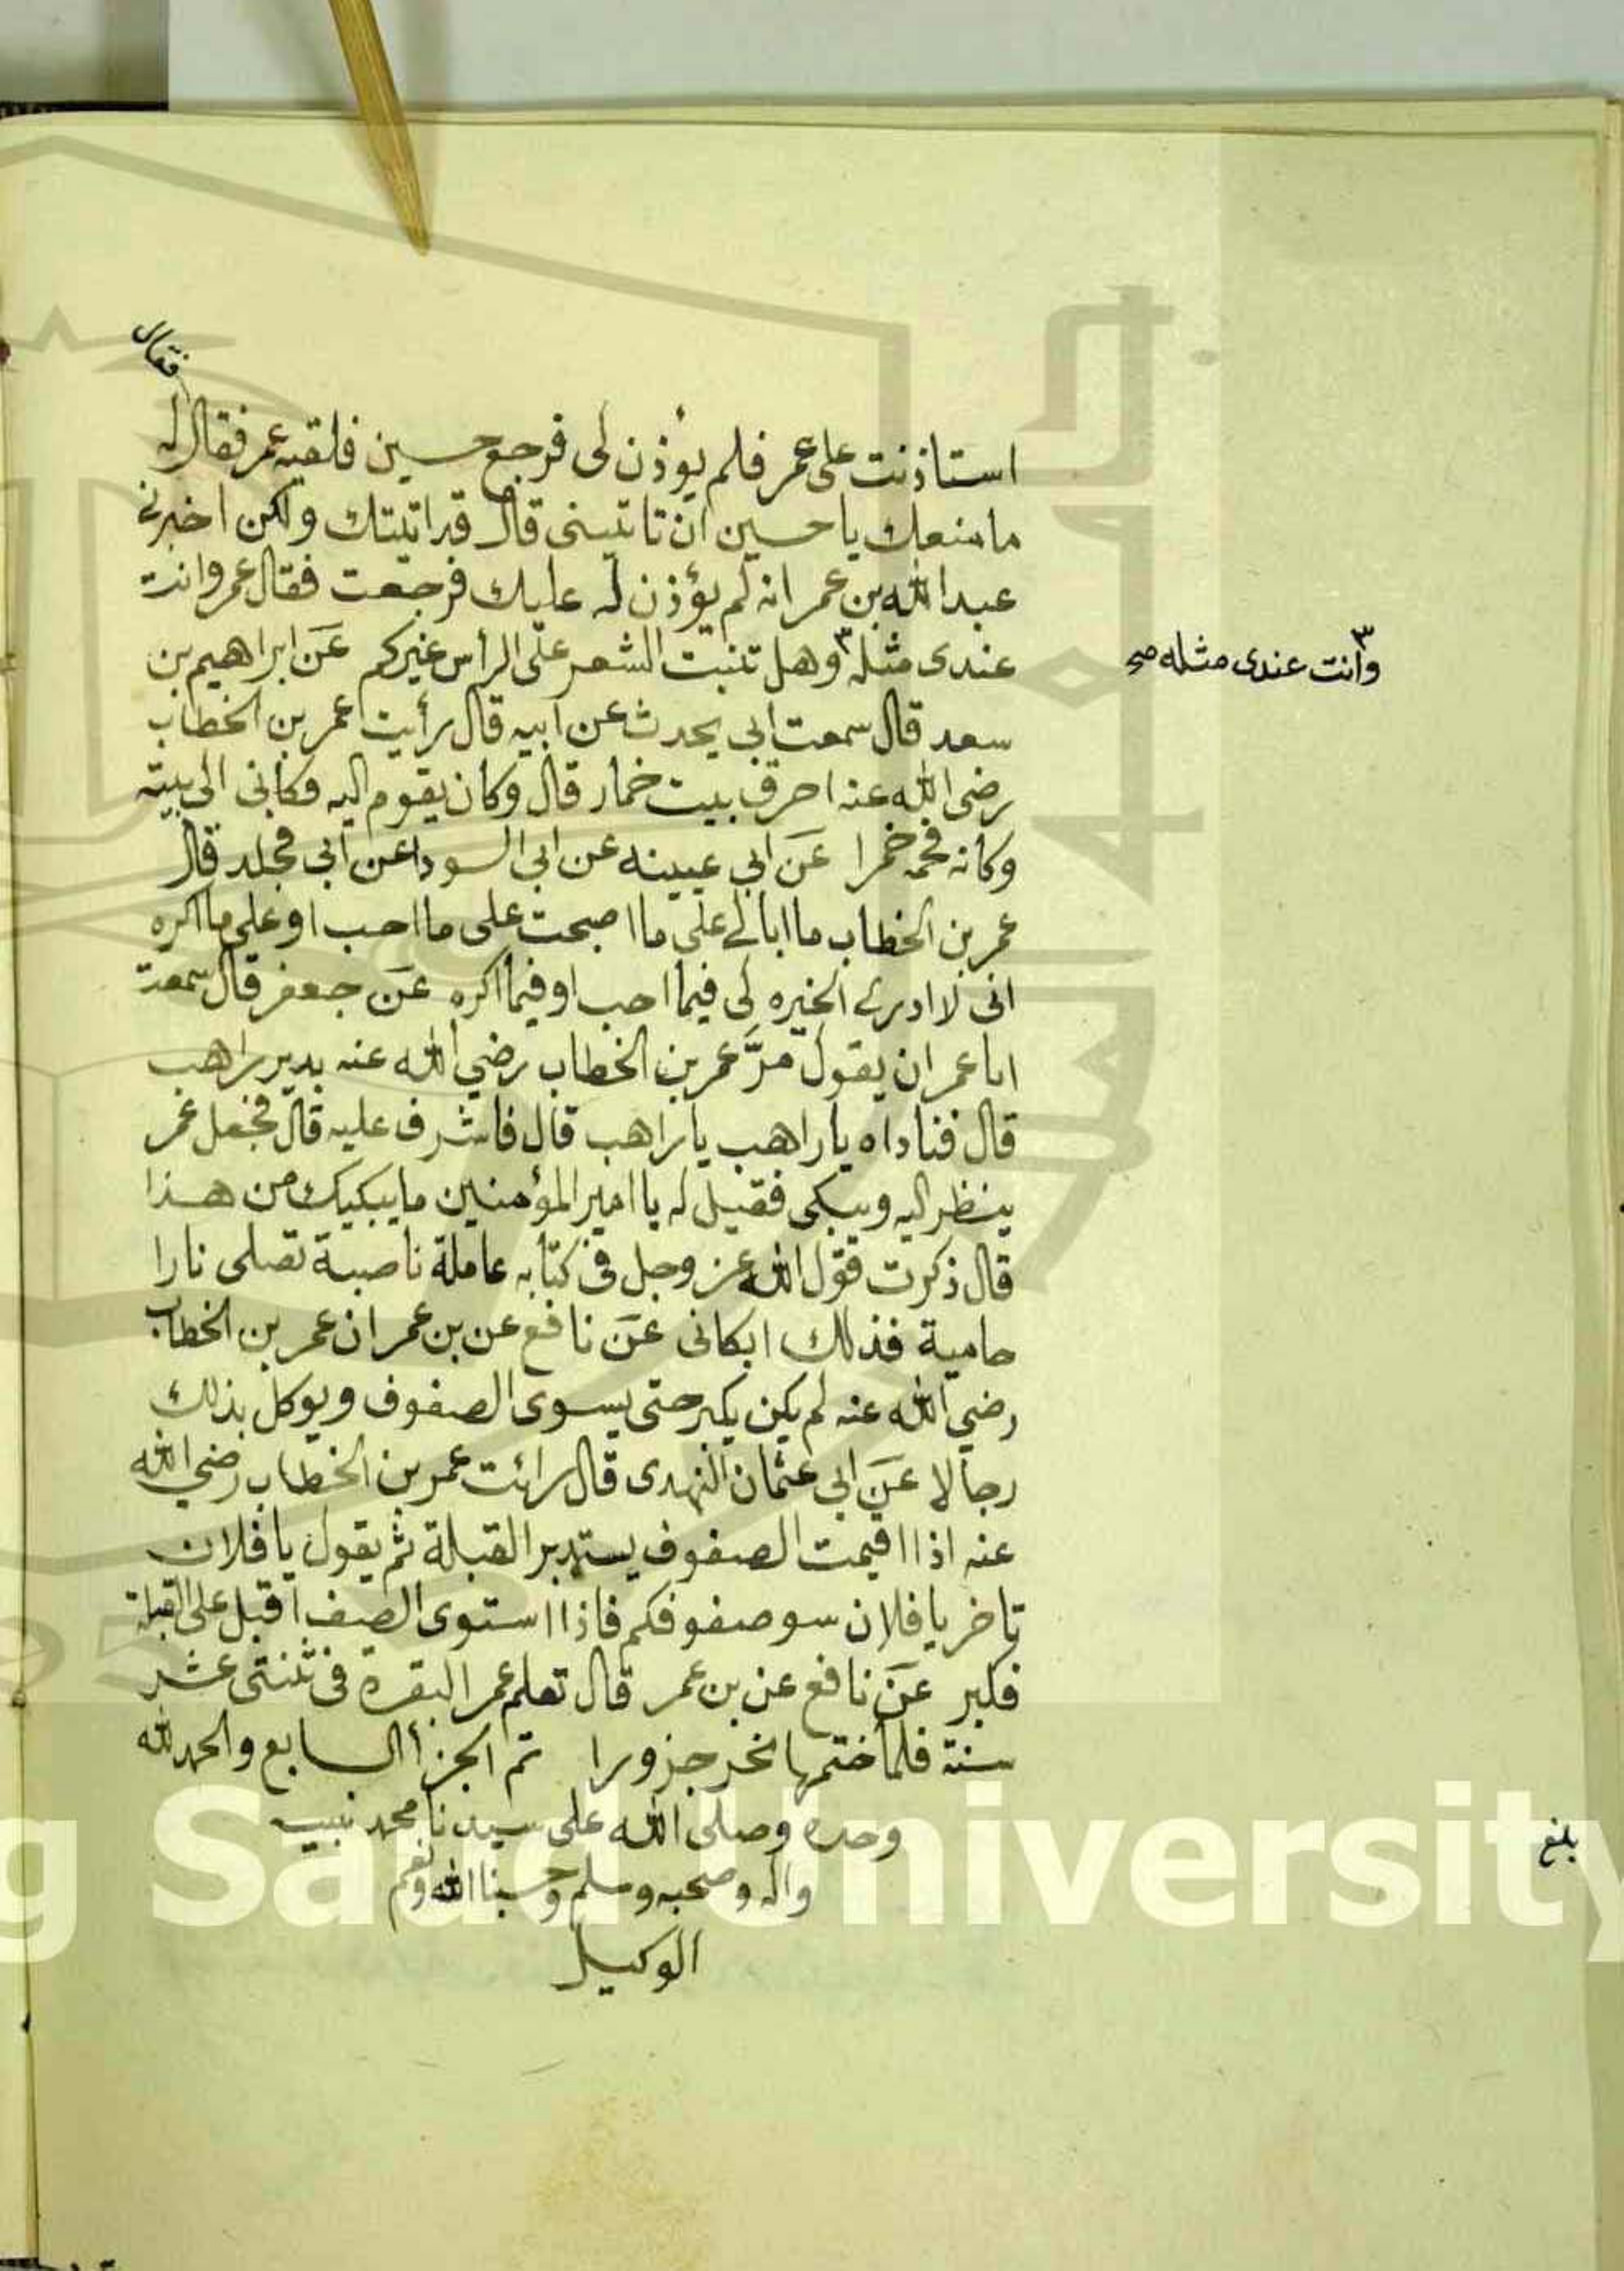 فقال
استاذنت على عمر فلم يؤذن لى فرجع حسين فلقيه عمر فقال له
ما منعك يا حسين ان تاتينى قال قد اتيتك ولكن اخبرنى
عبد الله بن عمر انه لم يؤذن له عليك فرجعت فقال عمر وانت
عندى مثله ٣ وهل تنبت الشعر على الرأس غيركم عن ابراهيم بن
٣ وأنت عندى مثله صح
سعد قال سمعت ابى يحدث عن ابيه قال رأيت عمر بن الخطاب
رضى الله عنه احرق بيت خمار قال وكان يقوم اليه فكانى الى بيته
وكانه فحمه خمرا عن ابى عيينه عن ابى السودا عن ابى مجلد قال
عمر بن الخطاب ما ابالى على ما اصبحت على ما احب او على ما اكره
انى لا ادرى الخيره لى فيما احب او فيما اكره عن جعفر قال سمعت
ابا عمران يقول مرَّ عمر بن الخطاب رضي الله عنه بدير راهب
قال فناداه يا راهب يا راهب قال فاشرف عليه قال فجعل عمر
ينظر اليه ويبكى فقيل له يا امير المؤمنين ما يبكيك من هذا
قال ذكرت قول الله عز وجل فى كتابه عاملة ناصبة تصلى نارا
حامية فذلك ابكانى عن نافع عن بن عمر ان عمر بن الخطاب
رضي الله عنه لم يكن يكبر حتى يسوى الصفوف ويوكل بذلك
رجالا عن ابى عثمان النهدى قال رائت عمر بن الخطاب رضي الله
عنه اذا اقيمت الصفوف يستدبر القبلة ثم يقول يا فلان
تاخر يا فلان سو صفوفكم فاذا استوى الصف اقبل على القبلة
فكبر عن نافع عن بن عمر قال تعلم عمر البقرة فى ثنتى عشر
سنة فلما ختمها نحر جزورا تم الجزأ السابع والحمد لله
وحده وصلى الله على سيدنا محمد نبيه
واله وصحبه وسلم وحسبنا الله ونعم
الوكيل
بلغ
g Saud University